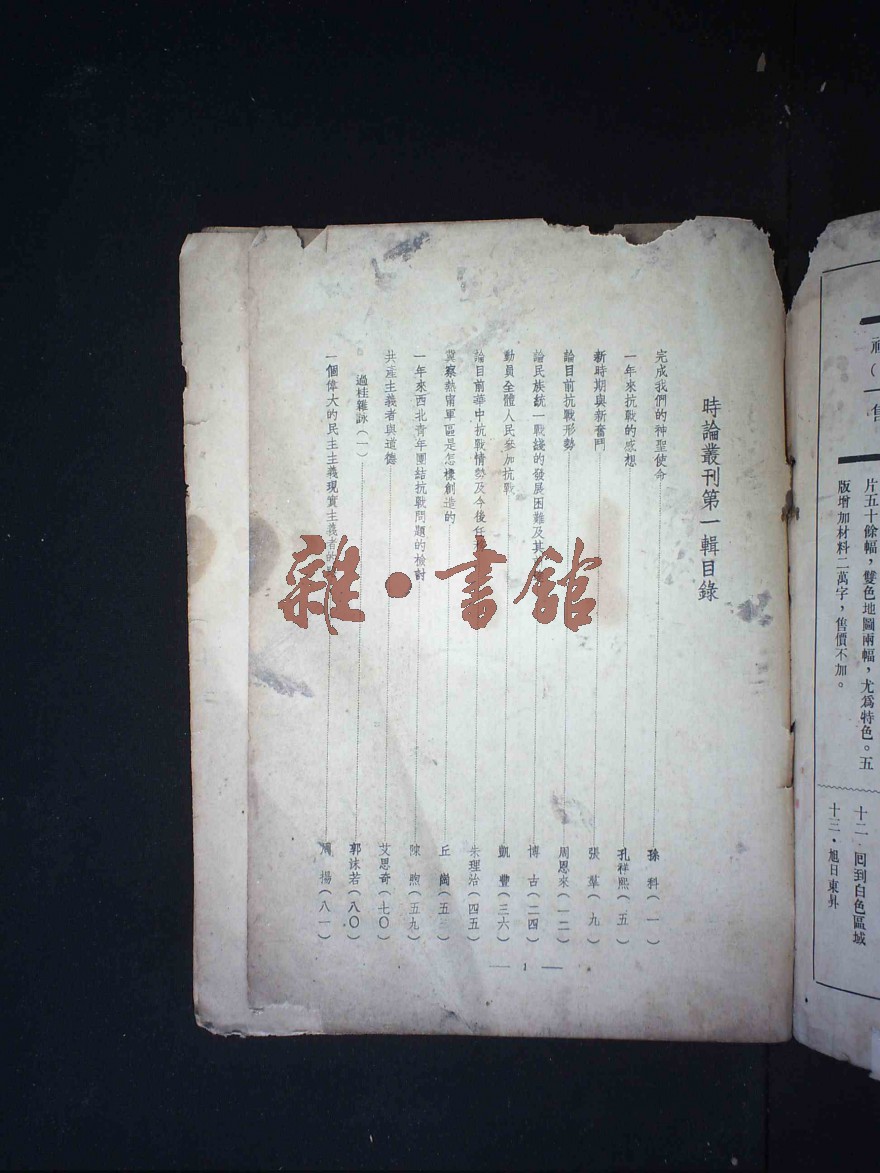 祁
(
售
片五十餘幅，雙色地圖兩幅，尤爲特色。五
版增加材料二萬字，售價不加。
十二 囘到白色區域
十三・旭日東昇
時論叢刊第一輯目錄
完成我們的神聖使命 孫科(一)
一年來抗戰的感想 孔祥熙(五)
新時期與新奮鬥 張羣(九)
論目前抗戰形勢 周恩來(一二)
論民族統一戰綫的發展困難及其 博古(二四)
動員全體人民參加抗戰 凱豐(三六)
論目前華中抗戰情勢及今後任 朱理治(四五)
冀察熱南軍區是怎樣創造的 丘崗(五三)
一年來西北青年團結抗戰問題的檢討 陳煦(五九)
共產主義者與道德 艾思奇(七〇)
過桂雜詠(一) 郭沫若(八〇)
一個偉大的民主主義現實主義者的 周揚(八一)
— 1 —
雜・書館